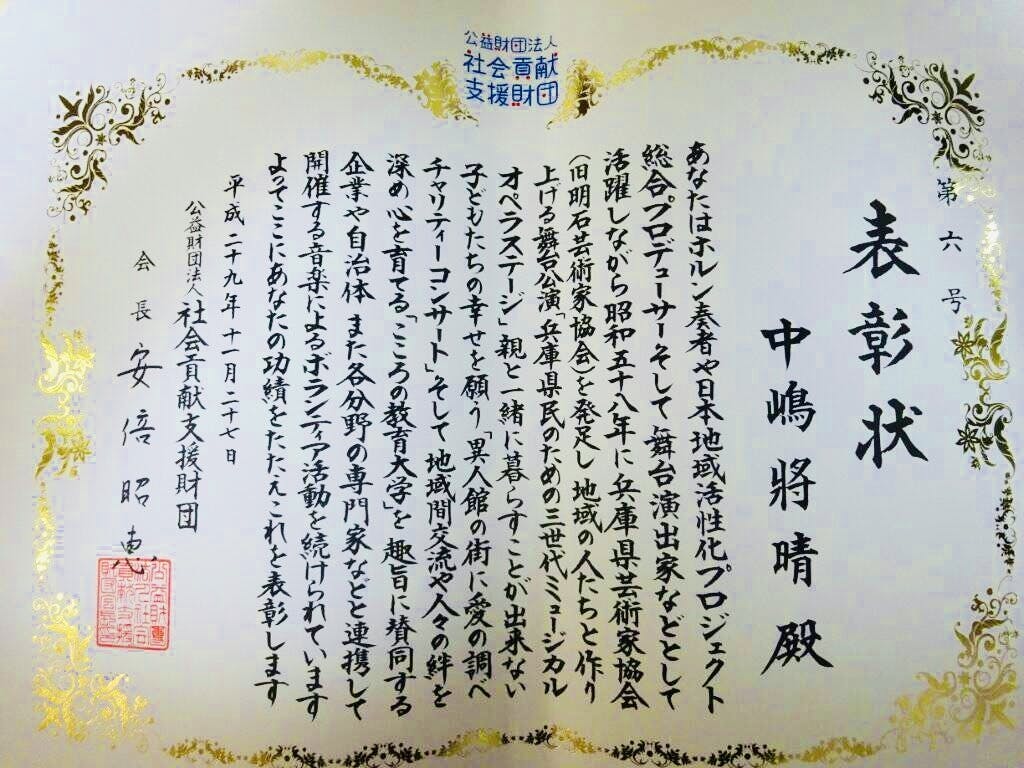 公益財団法人
社会貢献
支援財団
第六号
表彰状
中嶋將晴殿
あなたはホルン奏者や日本地域活性化プロジェクト
総合プロデューサーそして舞台演出家などとして
活躍しながら昭和五十八年に兵庫県芸術家協会
(旧明石芸術家協会)を発足し地域の人たちと作り
上げる舞台公演「兵庫県民のための三世代ミュージカル
オペラステージ」親と一緒に暮らすことが出来ない
子どもたちの幸せを願う「異人館の街に愛の調べ
チャリティーコンサート」そして地域間交流や人々の絆を
深め心を育てる「こころの教育大学」を趣旨に賛同する
企業や自治体また各分野の専門家などと連携して
開催する音楽によるボランティア活動を続けられています
よってここにあなたの功績をたたえこれを表彰します
平成二十九年十一月二十七日
公益財団法人社会貢献支援財団
会長安倍昭恵